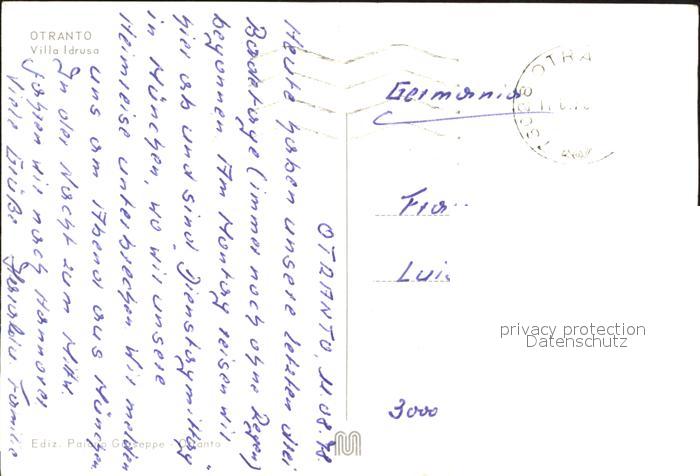 OTRANTO
Villa Idrusa
OTRANTO, 11.08.78.
Heute haben unsere letzten drei
Badetage (immer noch ohne Regen)
begonnen. Am Montag reisen wir
hier ab und sind Dienstagmittag
in München, wo wir unsere
Heimreise unterbrechen. Wir melden
uns am Abend aus München.
In der Nacht zum Mittw.
fahren wir nach Hannover
Viele Grüße Familie
Germania
OTRA
Frau
Luis
privacy protection
Datenschutz
3000
Ediz. Giuseppe - Otranto